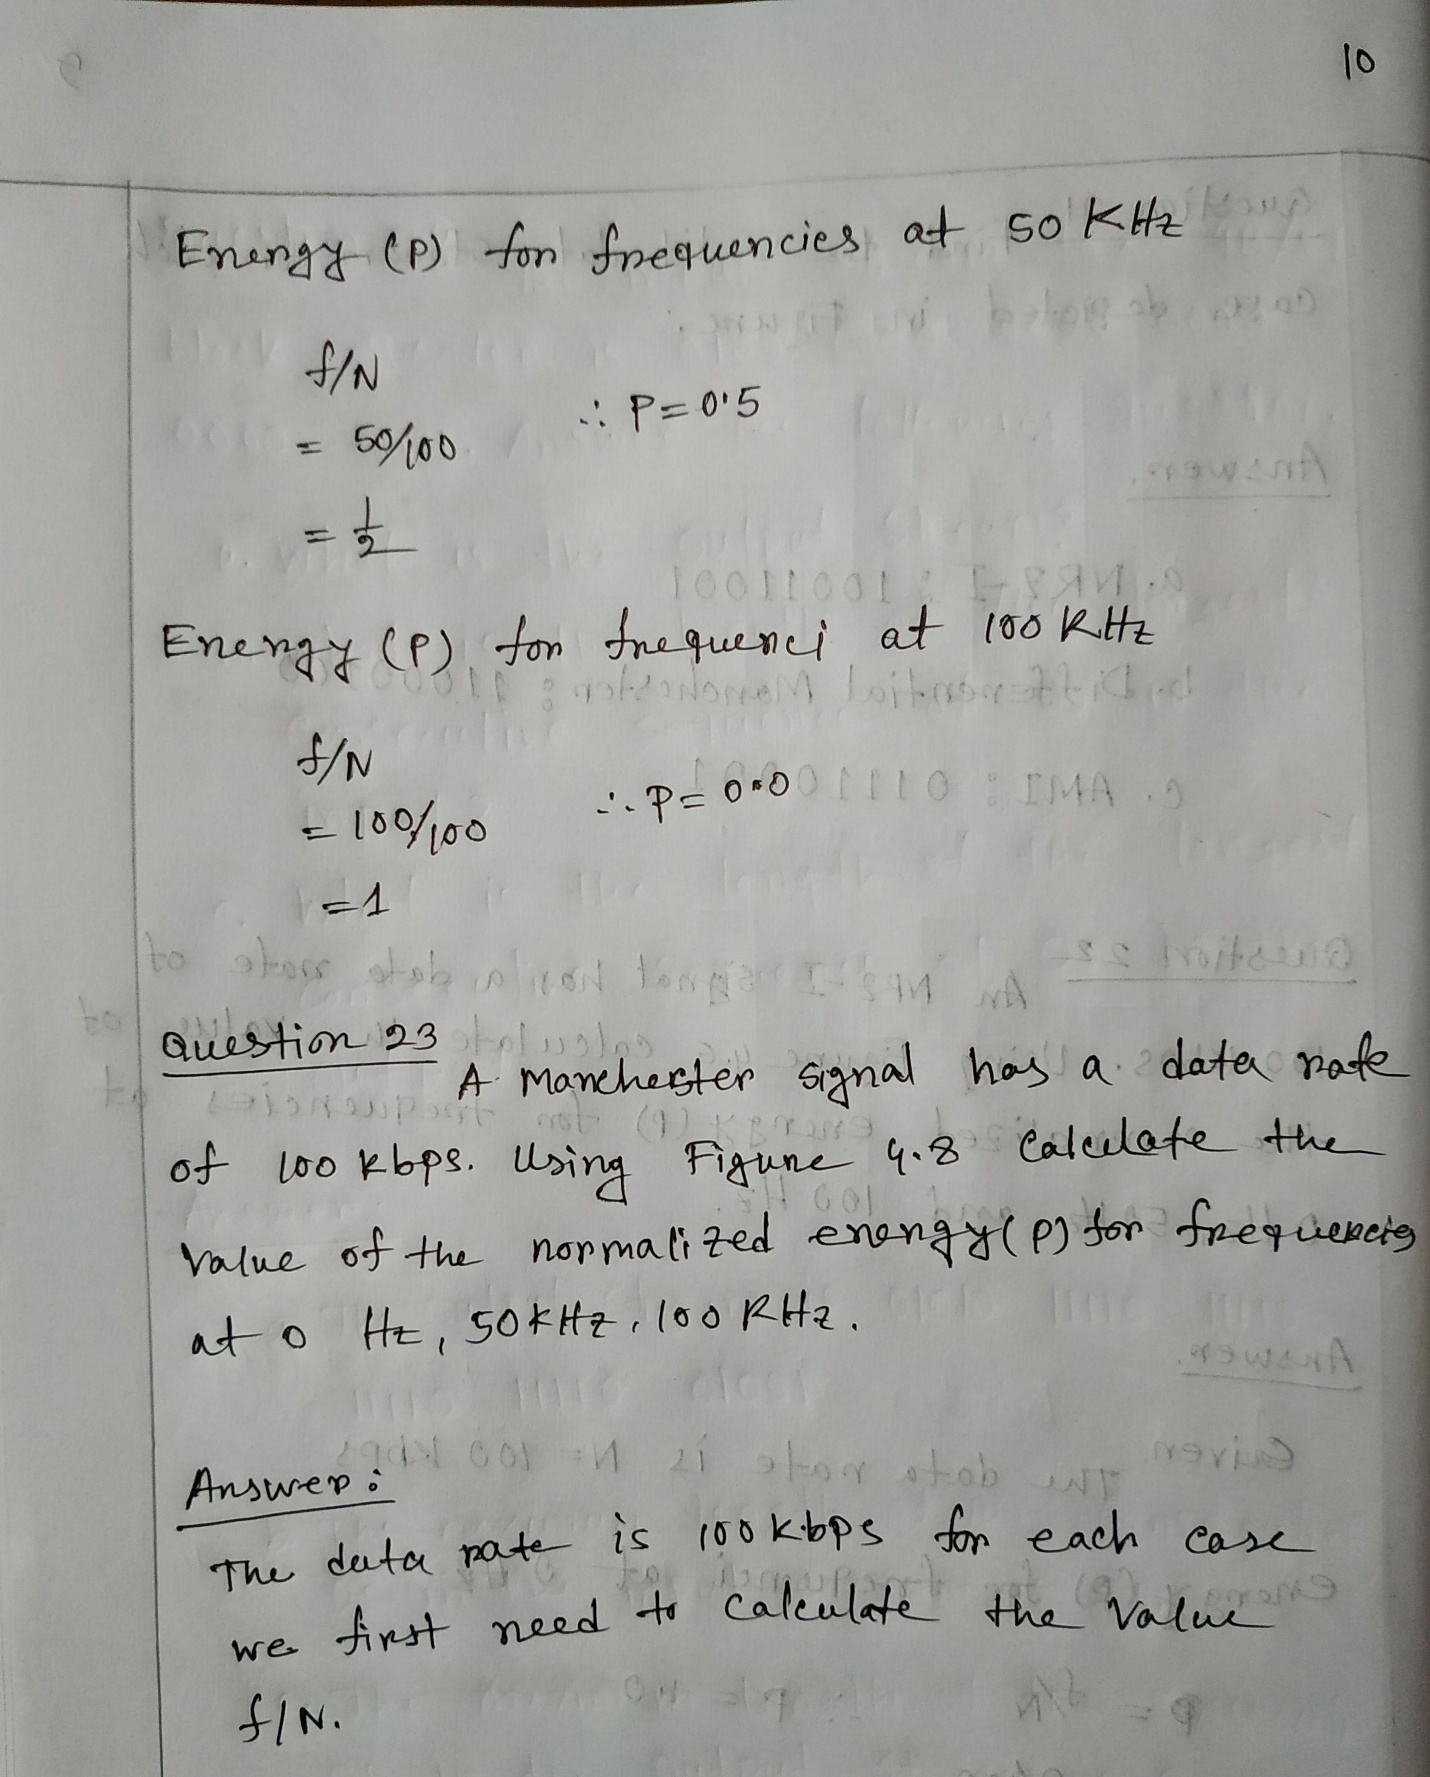 10
Energy (P) for frequencies at 50 KHz
f/N
= 50/100
∴ P = 0.5
= 1/2
Energy (P) for frequenci at 100 KHz
f/N
= 100/100
∴ P = 0.0
= 1
Question 23
A Manchester signal has a data rate
of 100 kbps. Using Figure 4.8 Calculate the
value of the normalized energy (P) for frequencies
at 0 Hz, 50 KHz, 100 KHz.
Answer:
The data rate is 100 kbps for each case
we first need to calculate the value
f/N.